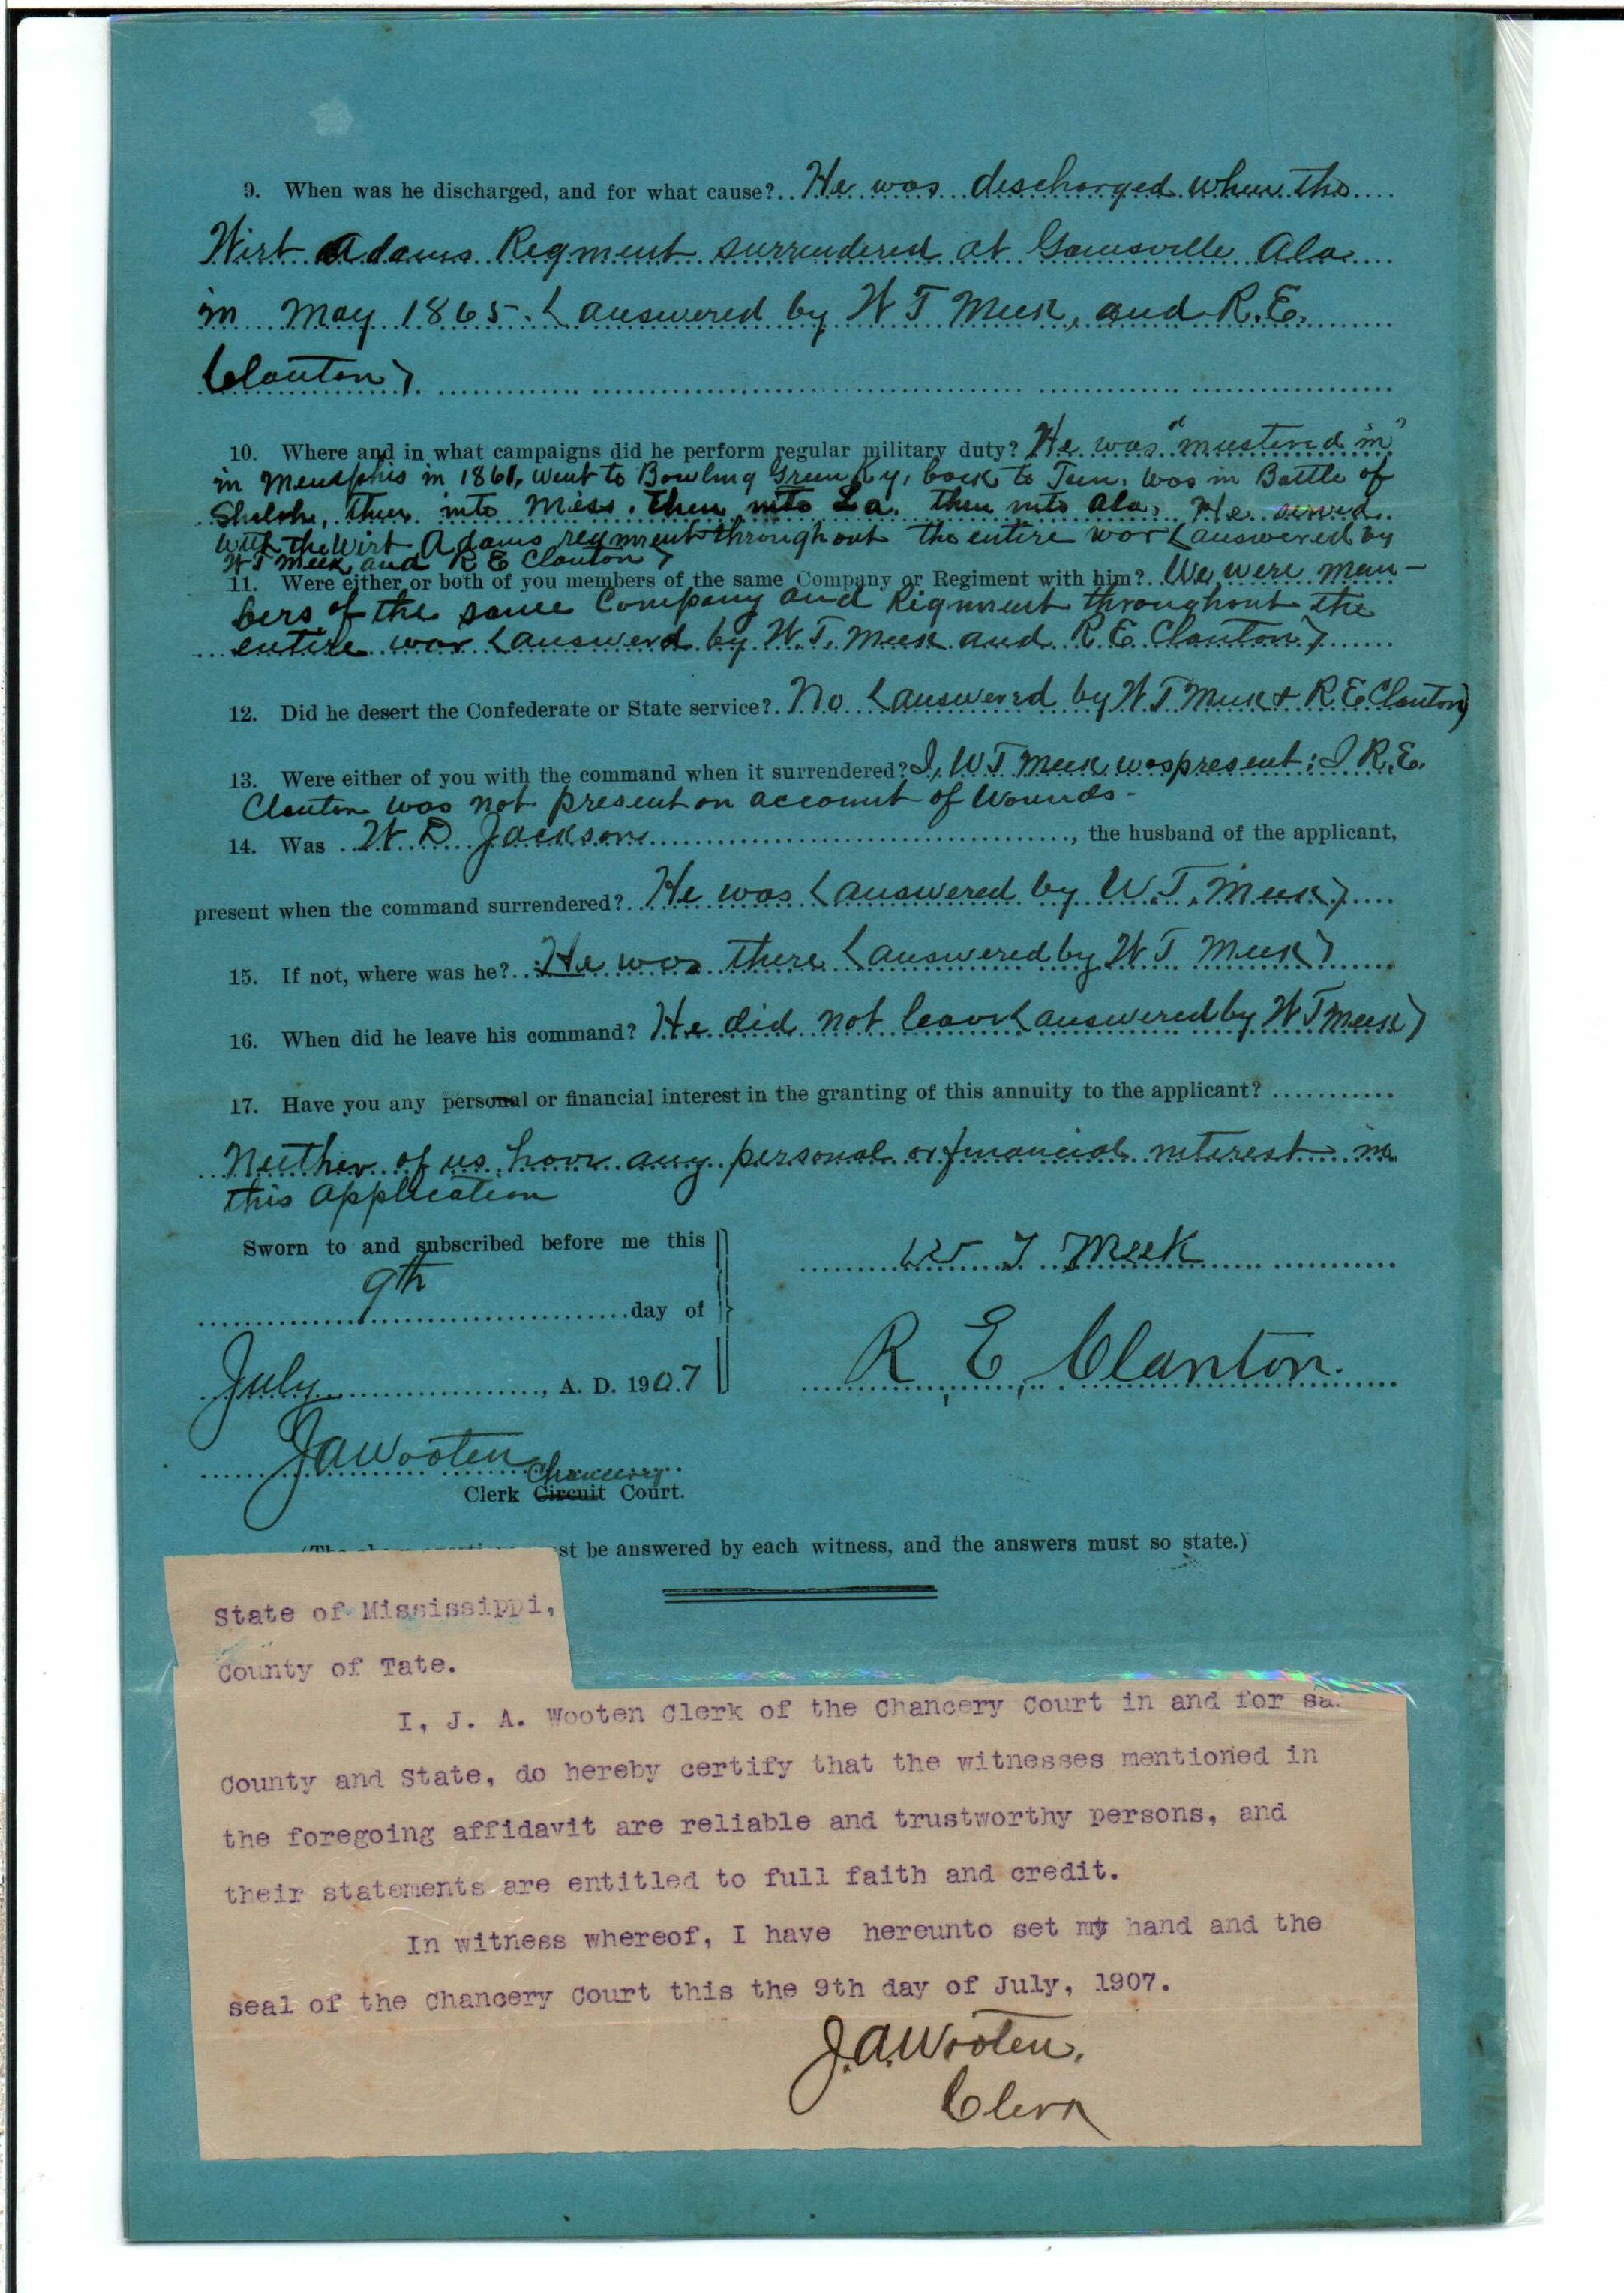 9. When was he discharged, and for what cause? He was descharged when the
Wirt Adams Regment surrendered at Gainsville Ala
in May 1865. (answered by W T Meek, and R. E.
Clanton)
10. Where and in what campaigns did he perform regular military duty? He was "mustered in"
in Memphis in 1861, went to Bowling Green Ky, back to Tenn. Was in Battle of
Shiloh, then into Miss. then into La. then into Ala. He served
with the Wirt Adams regment throughout the entire war (answered by
W T Meek and R E Clanton)
11. Were either or both of you members of the same Company or Regiment with him? We were mem-
bers of the same Company and Rigment throughout the
entire war (answerd by W. T. Meek and R E Clanton)
12. Did he desert the Confederate or State service? No (answered by W T Meek & R E Clanton)
13. Were either of you with the command when it surrendered? I, W T Meek was present; I R. E.
Clanton was not present on account of wounds-
14. Was W D Jackson, the husband of the applicant,
present when the command surrendered? He was (answered by W. T. Meek)
15. If not, where was he? He was there (answered by W T Meek)
16. When did he leave his command? He did not leave (answered by W T Meek)
17. Have you any personal or financial interest in the granting of this annuity to the applicant?
Neither of us have any personal or financial interest in
this application
Sworn to and subscribed before me this
9th
day of
July, A. D. 1907
W T Meek
R. E. Clanton.
J A Wooten
Chancery
Clerk Circuit Court.
st be answered by each witness, and the answers must so state.)
State of Mississippi,
County of Tate.
I, J. A. Wooten Clerk of the Chancery Court in and for sa
County and State, do hereby certify that the witnesses mentioned in
the foregoing affidavit are reliable and trustworthy persons, and
their statements are entitled to full faith and credit.
In witness whereof, I have hereunto set my hand and the
seal of the Chancery Court this the 9th day of July, 1907.
J. A. Wooten.
Clerk